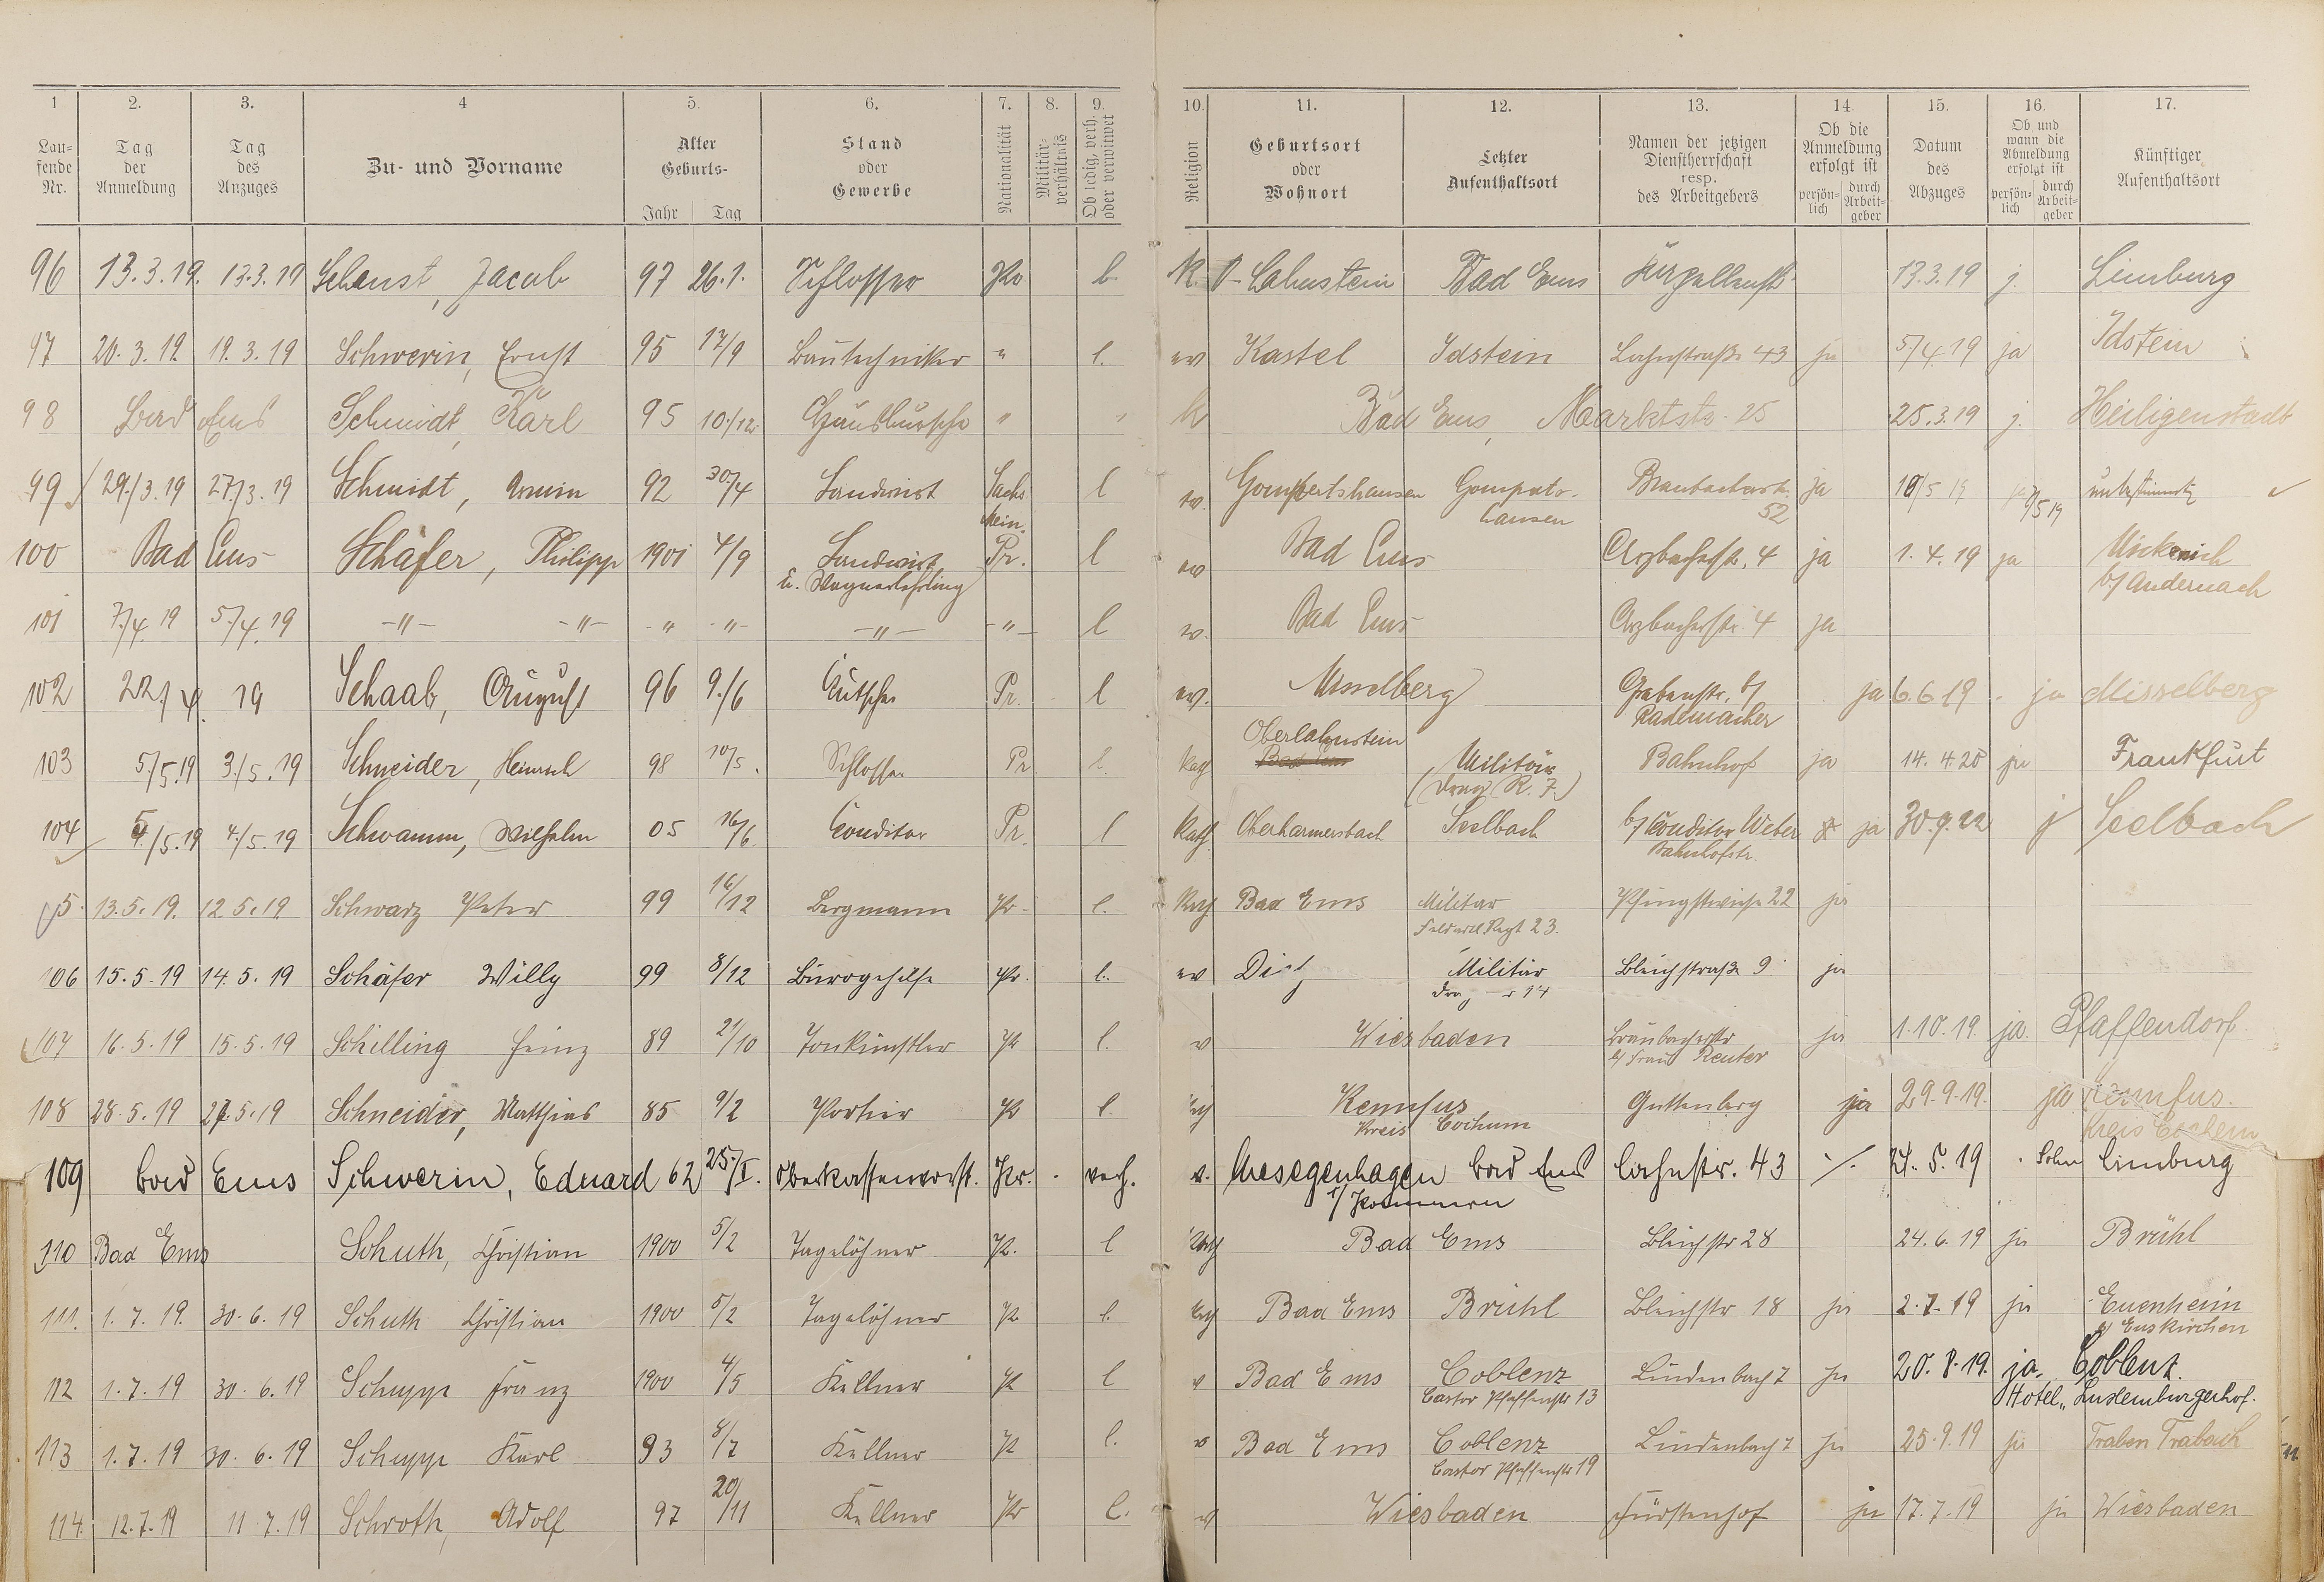 1 2. 3. 4 5. 6. 7. 8. 9. 10. 11. 12. 13. 14. 15. 16. 17.
Laufende Nr. Tag der Anmeldung Tag des Anzuges Zu- und Vorname Alter Geburts- Jahr Tag Stand oder Gewerbe Nationalität Militärverhältnis Ob ledig, verh. oder verwitwet Religion Geburtsort oder Wohnort Letzter Aufenthaltsort Namen der jetzigen Dienstherrschaft resp. des Arbeitgebers Ob die Anmeldung erfolgt ist persönlich durch Arbeitgeber Datum des Abzuges Ob und wann die Abmeldung erfolgt ist persönlich durch Arbeitgeber Künftiger Aufenthaltsort
96 13.3.19. 13.3.19 Schaust, Jacob 97 26.1. Schlosser Pr l. K. O-Lahnstein Bad Ems 13.3.19 j. Limburg
97 20.3.19 19.3.19 Schwerin, Ernst 95 17/9 Bautechniker " l. ev Kastel Idstein Lahnstraße 43 ja 5/4.19 ja Idstein
98 Bad Ems Schmidt, Karl 95 10./12. Hausbursche " " k Bad Ems, Marktstr. 25 25.3.19 j. Heiligenstadt
99 29./3.19 27./3.19 Schmidt, Armin 92 30./4 Landwirt Sachs. Mein. l ev. Gompertshausen Gompertshausen Braubacherstr. 52 ja 10/5 19 unbestimmt
100 Bad Ems Schäfer, Philipp 1901 4/9 Landwirt u. Wagnerlehrling Pr. l ev Bad Ems Arzbacherstr. 4 ja 1.4.19 ja Mickenich b/ Andernach
101 7./4.19 5./4.19 -"- -"- -"- -"- -"- -"- l ev. Bad Ems Arzbacherstr. 4 ja
102 22./4. 19 Schaab, August 96 9./6 Kutscher Pr. l ev. Misselberg Grabenstr. b/ Rademacher ja 6.6.19 ja Misselberg
103 5./5.19 3./5.19 Schneider, Heinrich 98 10/5. Schlosser Pr l. kath Oberlahnstein Bad Ems Militär (Drag. R. 7.) Bahnhof ja 14.4.20 ja Frankfurt
104 5./5.19 4./5.19 Schwamm, Wilhelm 05 16/6. Conditor Pr. l kath. Oberharmersbach Seelbach b/ Conditor Weber Bahnhofstr. ja 30.9.22 j Seelbach
5. 13.5.19. 12.5.19 Schwarz Peter 99 16/12 Bergmann Pr l. kath Bad Ems Militär Feldartl. Regt 23. Pfingstwiese 22 ja
106 15.5.19 14.5.19 Schäfer Willy 99 8/12 Bürogehilfe Pr. l. ev Diez Militär Bleichstraße 9 ja
107 16.5.19 15.5.19 Schilling Heinz 89 21/10 Tonkünstler Pr l. ev Wiesbaden Braubacherstr b/ Frau Reuter ja 1.10.19. ja. Pfaffendorf.
108 28.5.19 27.5.19 Schneider, Matthias 85 9/2 Portier Pr l. kath Kennfus Kreis Cochum Guttenberg ja 29.9.19. ja Kennfus. Kreis Cochem
109 Bad Ems Schwerin, Eduard 62 25./I. Oberkassenvorst. Pr. verh. ev. Mesegenhagen i/ Pommern Bad Ems Lahnstr. 43 ./. 24.5.19 Sohn Limburg
110 Bad Ems Schuth, Christian 1900 5/2 Tagelöhner Pr. l kath Bad Ems Bleichstr 28 24.6.19 ja Brühl
111. 1.7.19. 30.6.19 Schuth Christian 1900 5/2 Tagelöhner Pr l. kath Bad Ems Brühl Bleichstr 18 ja 2.7.19 ja Euenheim b/ Euskirchen
112 1.7.19 30.6.19 Schupp Franz 1900 4/5 Kellner Pr l ev Bad Ems Coblenz Castor Pfaffenstr 13 Lindenbach 7 ja 20.8.19. ja. Coblenz. Hotel „Luxemburgerhof.
113 1.7.19 30.6.19 Schupp Karl 93 8/7 Kellner Pr l. ev Bad Ems Coblenz Castor Pfaffenstr 19 Lindenbach 7 ja 25.9.19 ja Traben Trabach
114 12.7.19 11.7.19 Schroth, Adolf 97 20/11 Kellner Pr l. ev Wiesbaden Fürstenhof ja 17.7.19 ja Wiesbaden